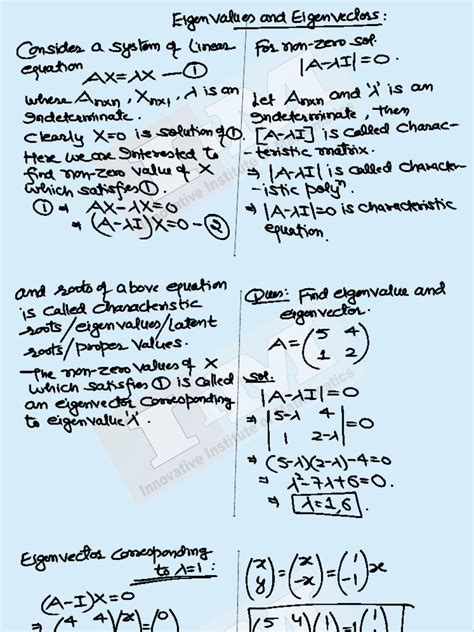 Eigenvalues and Eigenvectors:
Consider a system of Linear
equation
AX=λX — ①
where Anxn, Xnx1, λ is an
Indeterminate.
Clearly X=0 is solution of ①.
Here we are Interested to
find non-zero value of X
which satisfies ①.
① ⇒ AX-λX=0
⇒ (A-λI)X=0 — ②
For non-zero sol.
|A-λI|=0.
Let Anxn and 'λ' is an
Indeterminate, Then
[A-λI] is called Charac-
-teristic matrix.
⇒ |A-λI| is called Character-
-istic polyⁿ.
⇒ |A-λI|=0 is characteristic
equation.
and roots of above equation
is called Characteristic
roots/eigenvalues/latent
roots/proper values.
-The non-zero values of X
which satisfies ① is called
an eigenvector Corresponding
to eigenvalue 'λ'.
Ques: Find eigenvalue and
eigenvector.
A = (5 4
1 2)
Sol.
|A-λI|=0
⇒ |5-λ 4
1 2-λ|=0
⇒ (5-λ)(2-λ)-4=0
⇒ λ²-7λ+6=0.
⇒ λ=1,6.
Eigenvector Corresponding
to λ=1:
(A-I)X=0
(4 4)(x)=(0)
(x
y)=(x
-x)=(1
-1)x
(5 4)(1)=1(1)
Innovative Institute of
Innovative Institute of Mathematics